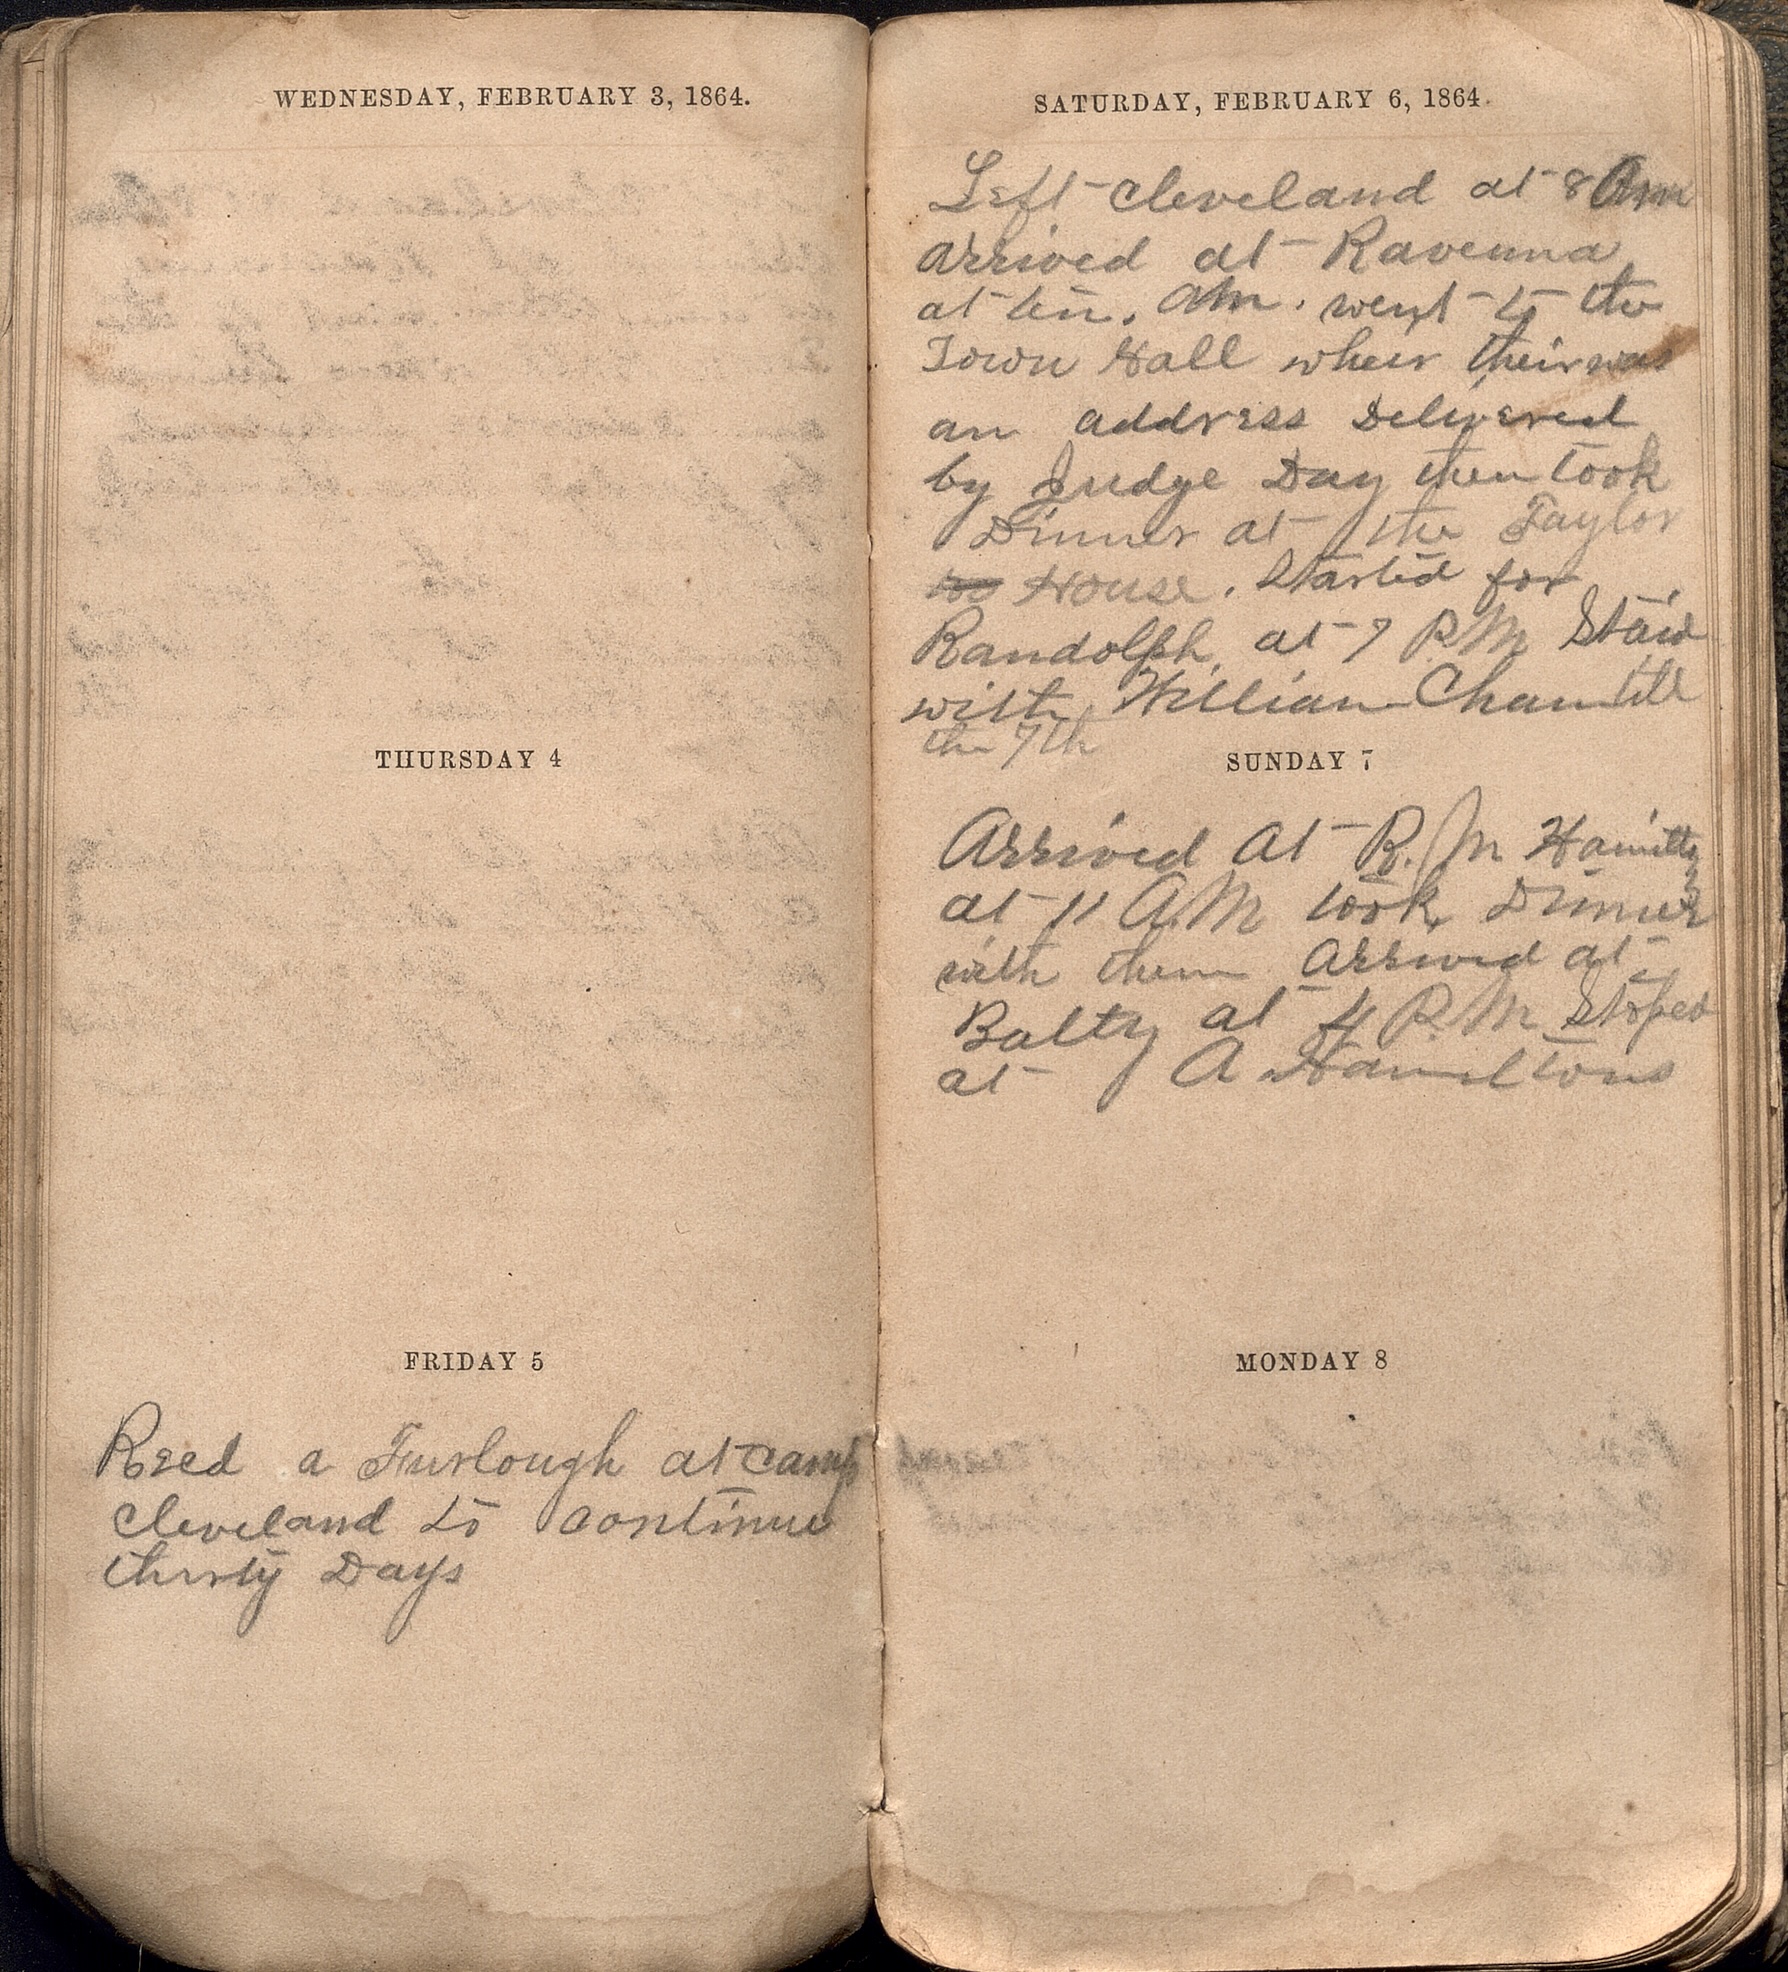 WEDNESDAY, FEBRUARY 3, 1864.
THURSDAY 4
FRIDAY 5
Recd a Furlough at camp
Cleveland to continue
thirty Days
SATURDAY, FEBRUARY 6, 1864.
Left Cleveland at 8 Am
arrived at Ravenna
at ten. AM. went to the
Town Hall wheir their was
an address Delivered
by Judge Day then took
Dinner at the Taylor
House. Started for
Randolph, at 7 P M Staid
with William Cham till
the 7th
SUNDAY 7
Arrived At R. M Hamiltons
at 11 A.M took Dinner
with them Arrived at
Balty at 4 P. M Stoped
at A Hamiltons
MONDAY 8